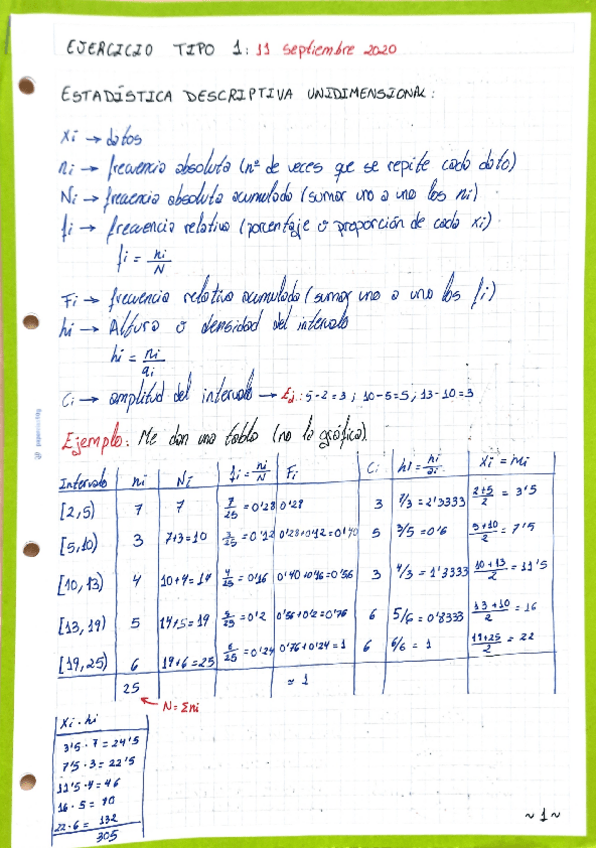 EJERCICIO TIPO 1: 11 septiembre 2020
ESTADÍSTICA DESCRIPTIVA UNIDIMENSIONAL:
Xi → datos
ni → frecuencia absoluta (nº de veces que se repite cada dato)
Ni → frecuencia absoluta acumulada (sumar uno a uno los ni)
fi → frecuencia relativa (porcentaje o proporción de cada xi)
fi = ni/N
Fi → frecuencia relativa acumulada (sumar uno a uno los fi)
hi → Altura o densidad del intervalo
hi = ni/ai
Ci → amplitud del intervalo → Ej: 5-2=3; 10-5=5; 13-10=3
Ejemplo: Me dan una tabla (no la gráfica)
Intervalo ni Ni fi = ni/N Fi Ci hi = ni/ai Xi = mi
[2,5) 7 7 7/25 = 0'28 0'28 3 7/3 = 2'3333 2+5/2 = 3'5
[5,10) 3 7+3=10 3/25 = 0'12 0'28+0'12=0'40 5 3/5=0'6 5+10/2 = 7'5
[10,13) 4 10+4=14 4/25 = 0'16 0'40+0'16=0'56 3 4/3 = 1'3333 10+13/2 = 11'5
[13,19) 5 14+5=19 5/25 = 0'2 0'56+0'2=0'76 6 5/6=0'8333 13+10/2 = 16
[19,25) 6 19+6=25 6/25 = 0'24 0'76+0'24=1 6 6/6 = 1 19+25/2 = 22
25 ≈ 1
N = Σni
Xi · hi
3'5 · 7 = 24'5
7'5 · 3 = 22'5
11'5 · 4 = 46
16 · 5 =
22 · 6 = 132
305
~ 1 ~